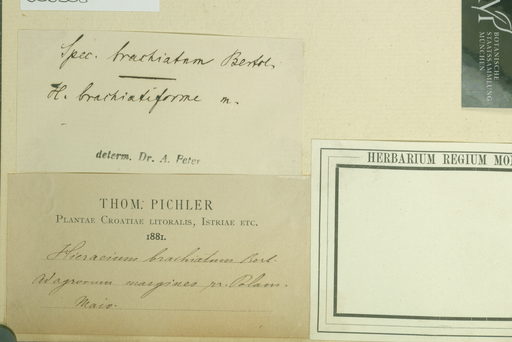 Spec. brachiatum Bertol.
H. brachiatiforme m.
determ. Dr. A. Peter
THOM. PICHLER
PLANTAE CROATIAE LITORALIS, ISTRIAE ETC.
1881.
Hieracium brachiatum Bert.
Adagrorum margines pr. Polam.
Maio.
BOTANISCHE
STAATSSAMMLUNG
MÜNCHEN
HERBARIUM REGIUM